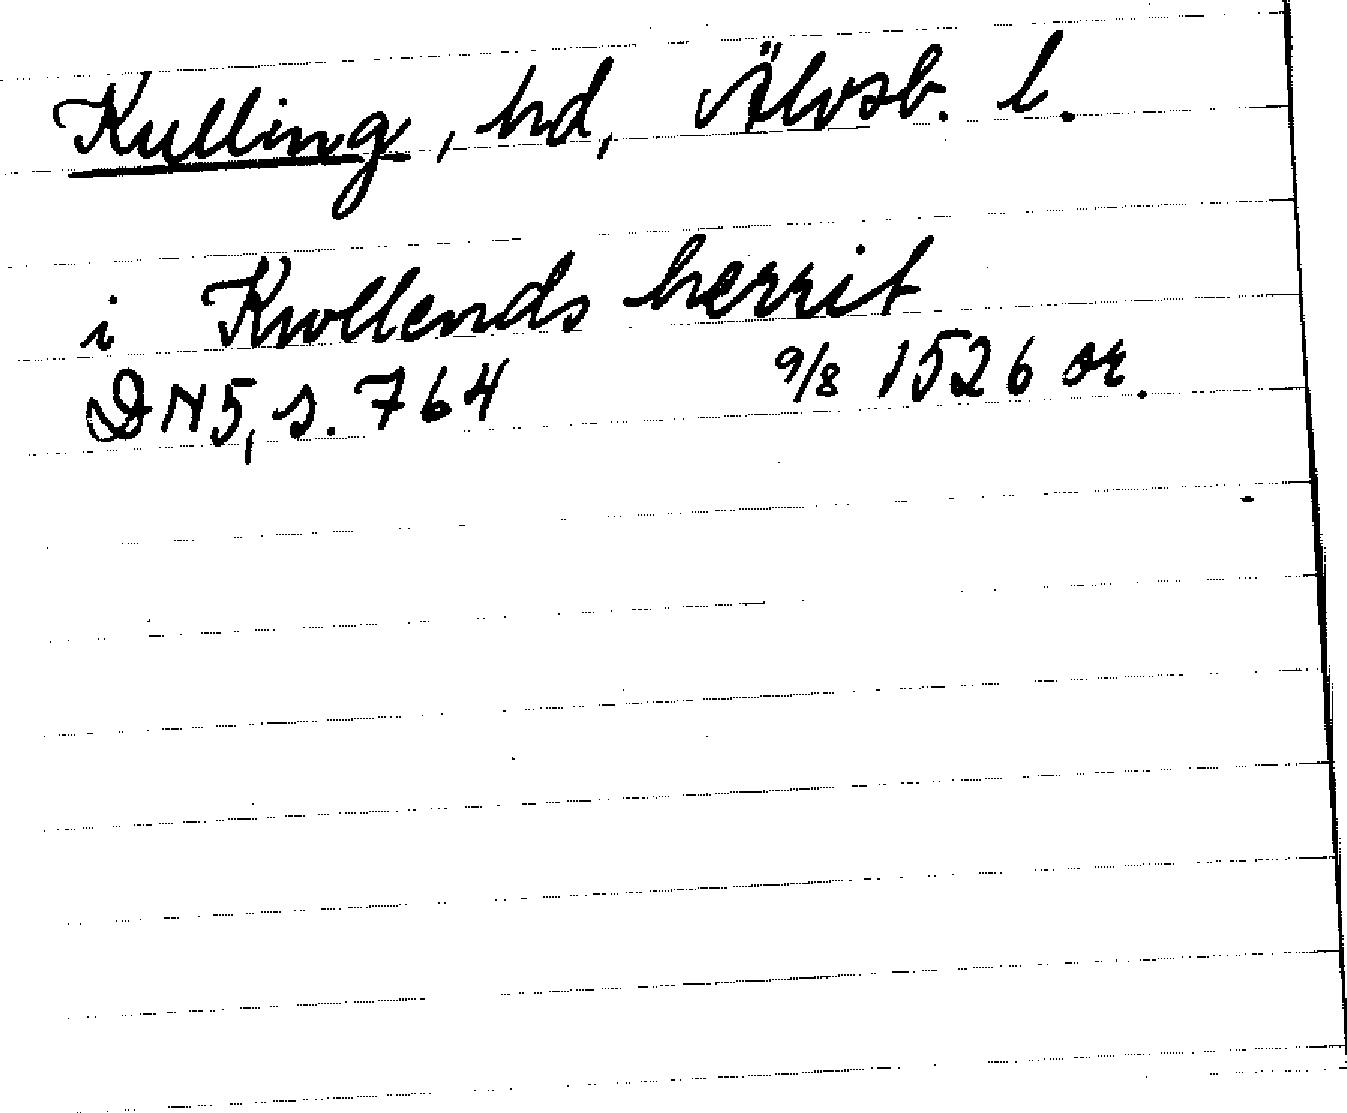 Kulling, hd, Älvsb. l.
i Kwllends herrit
DN5, s. 764 9/8 1526 or.